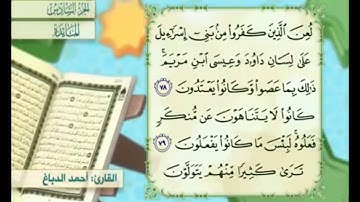 الجزء السادس
المائدة
لُعِنَ الَّذِينَ كَفَرُوا مِنْ بَنِي إِسْرَٰٓءِيلَ
عَلَىٰ لِسَانِ دَاوُۥدَ وَعِيسَى ابْنِ مَرْيَمَ ۚ
ذَٰلِكَ بِمَا عَصَوا وَّكَانُوا يَعْتَدُونَ ﴿٧٨﴾
كَانُوا لَا يَتَنَاهَوْنَ عَن مُّنكَرٍ
فَعَلُوهُ ۚ لَبِئْسَ مَا كَانُوا يَفْعَلُونَ ﴿٧٩﴾
تَرَىٰ كَثِيرًا مِّنْهُمْ يَتَوَلَّوْنَ
القارئ: أحمد الدباغ